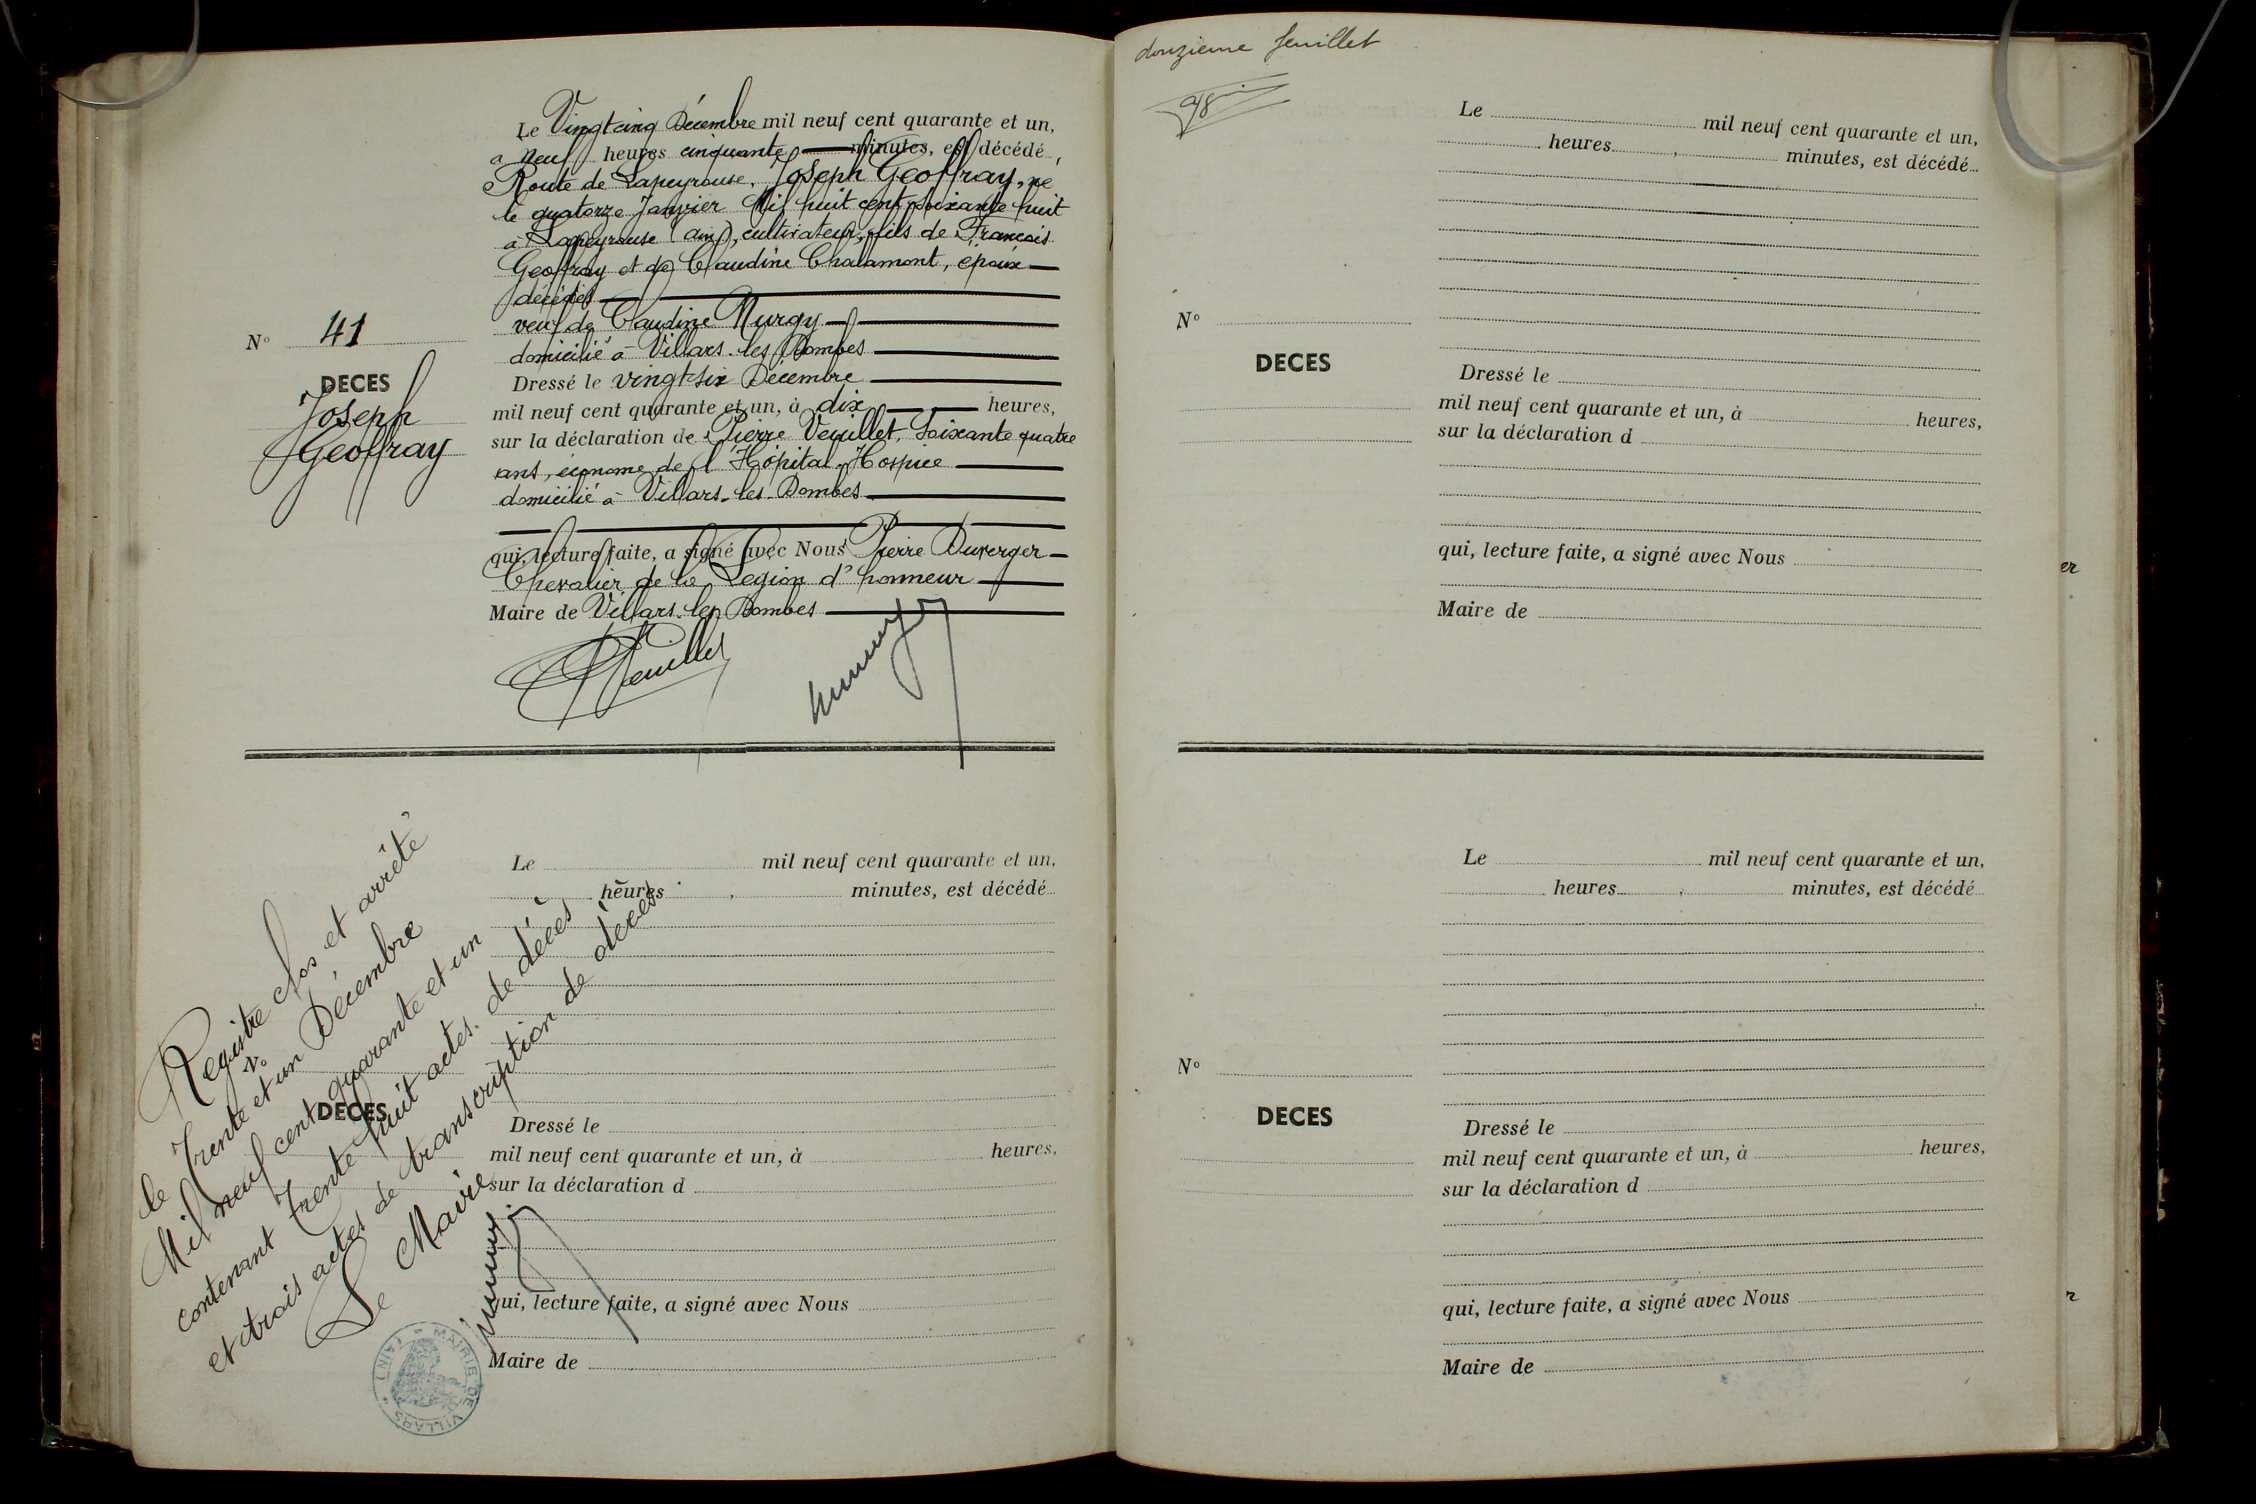 Le Vingt cinq Décembre mil neuf cent quarante et un,
à neuf heures cinquante minutes, est décédé,
Route de Lapeyrouse, Joseph Geoffray, né
le quatorze Janvier Mil huit cent soixante huit
à Lapeyrouse (ain), cultivateur, fils de François
Geoffray et de Claudine Chalamont, époux
décédés
veuf de Claudine Murgy
domicilié à Villars-les-Dombes
Dressé le vingt-six Décembre
mil neuf cent quarante et un, à dix heures,
sur la déclaration de Pierre Veuillet, Soixante quatre
ans, économe de l'Hôpital-Hospice
domicilié à Villars-les-Dombes
qui, lecture faite, a signé avec Nous Pierre Duverger
Chevalier de la Légion d'honneur
Maire de Villars-les-Dombes
Veuillet
N° 41
DECES
Joseph
Geoffray
Le mil neuf cent quarante et un,
heures, minutes, est décédé
N°
DECES
Dressé le
mil neuf cent quarante et un, à heures,
sur la déclaration d
qui, lecture faite, a signé avec Nous
Maire de
Registre clos et arrêté
le Trente et un Décembre
Mil neuf cent quarante et un
contenant Trente huit actes de décès
et trois actes de transcription de décès
Le Maire
MAIRIE DE VILLARS (AIN)
douzieme feuillet
Le mil neuf cent quarante et un,
heures, minutes, est décédé
N°
DECES
Dressé le
mil neuf cent quarante et un, à heures,
sur la déclaration d
qui, lecture faite, a signé avec Nous
Maire de
Le mil neuf cent quarante et un,
heures, minutes, est décédé
N°
DECES
Dressé le
mil neuf cent quarante et un, à heures,
sur la déclaration d
qui, lecture faite, a signé avec Nous
Maire de
er
r